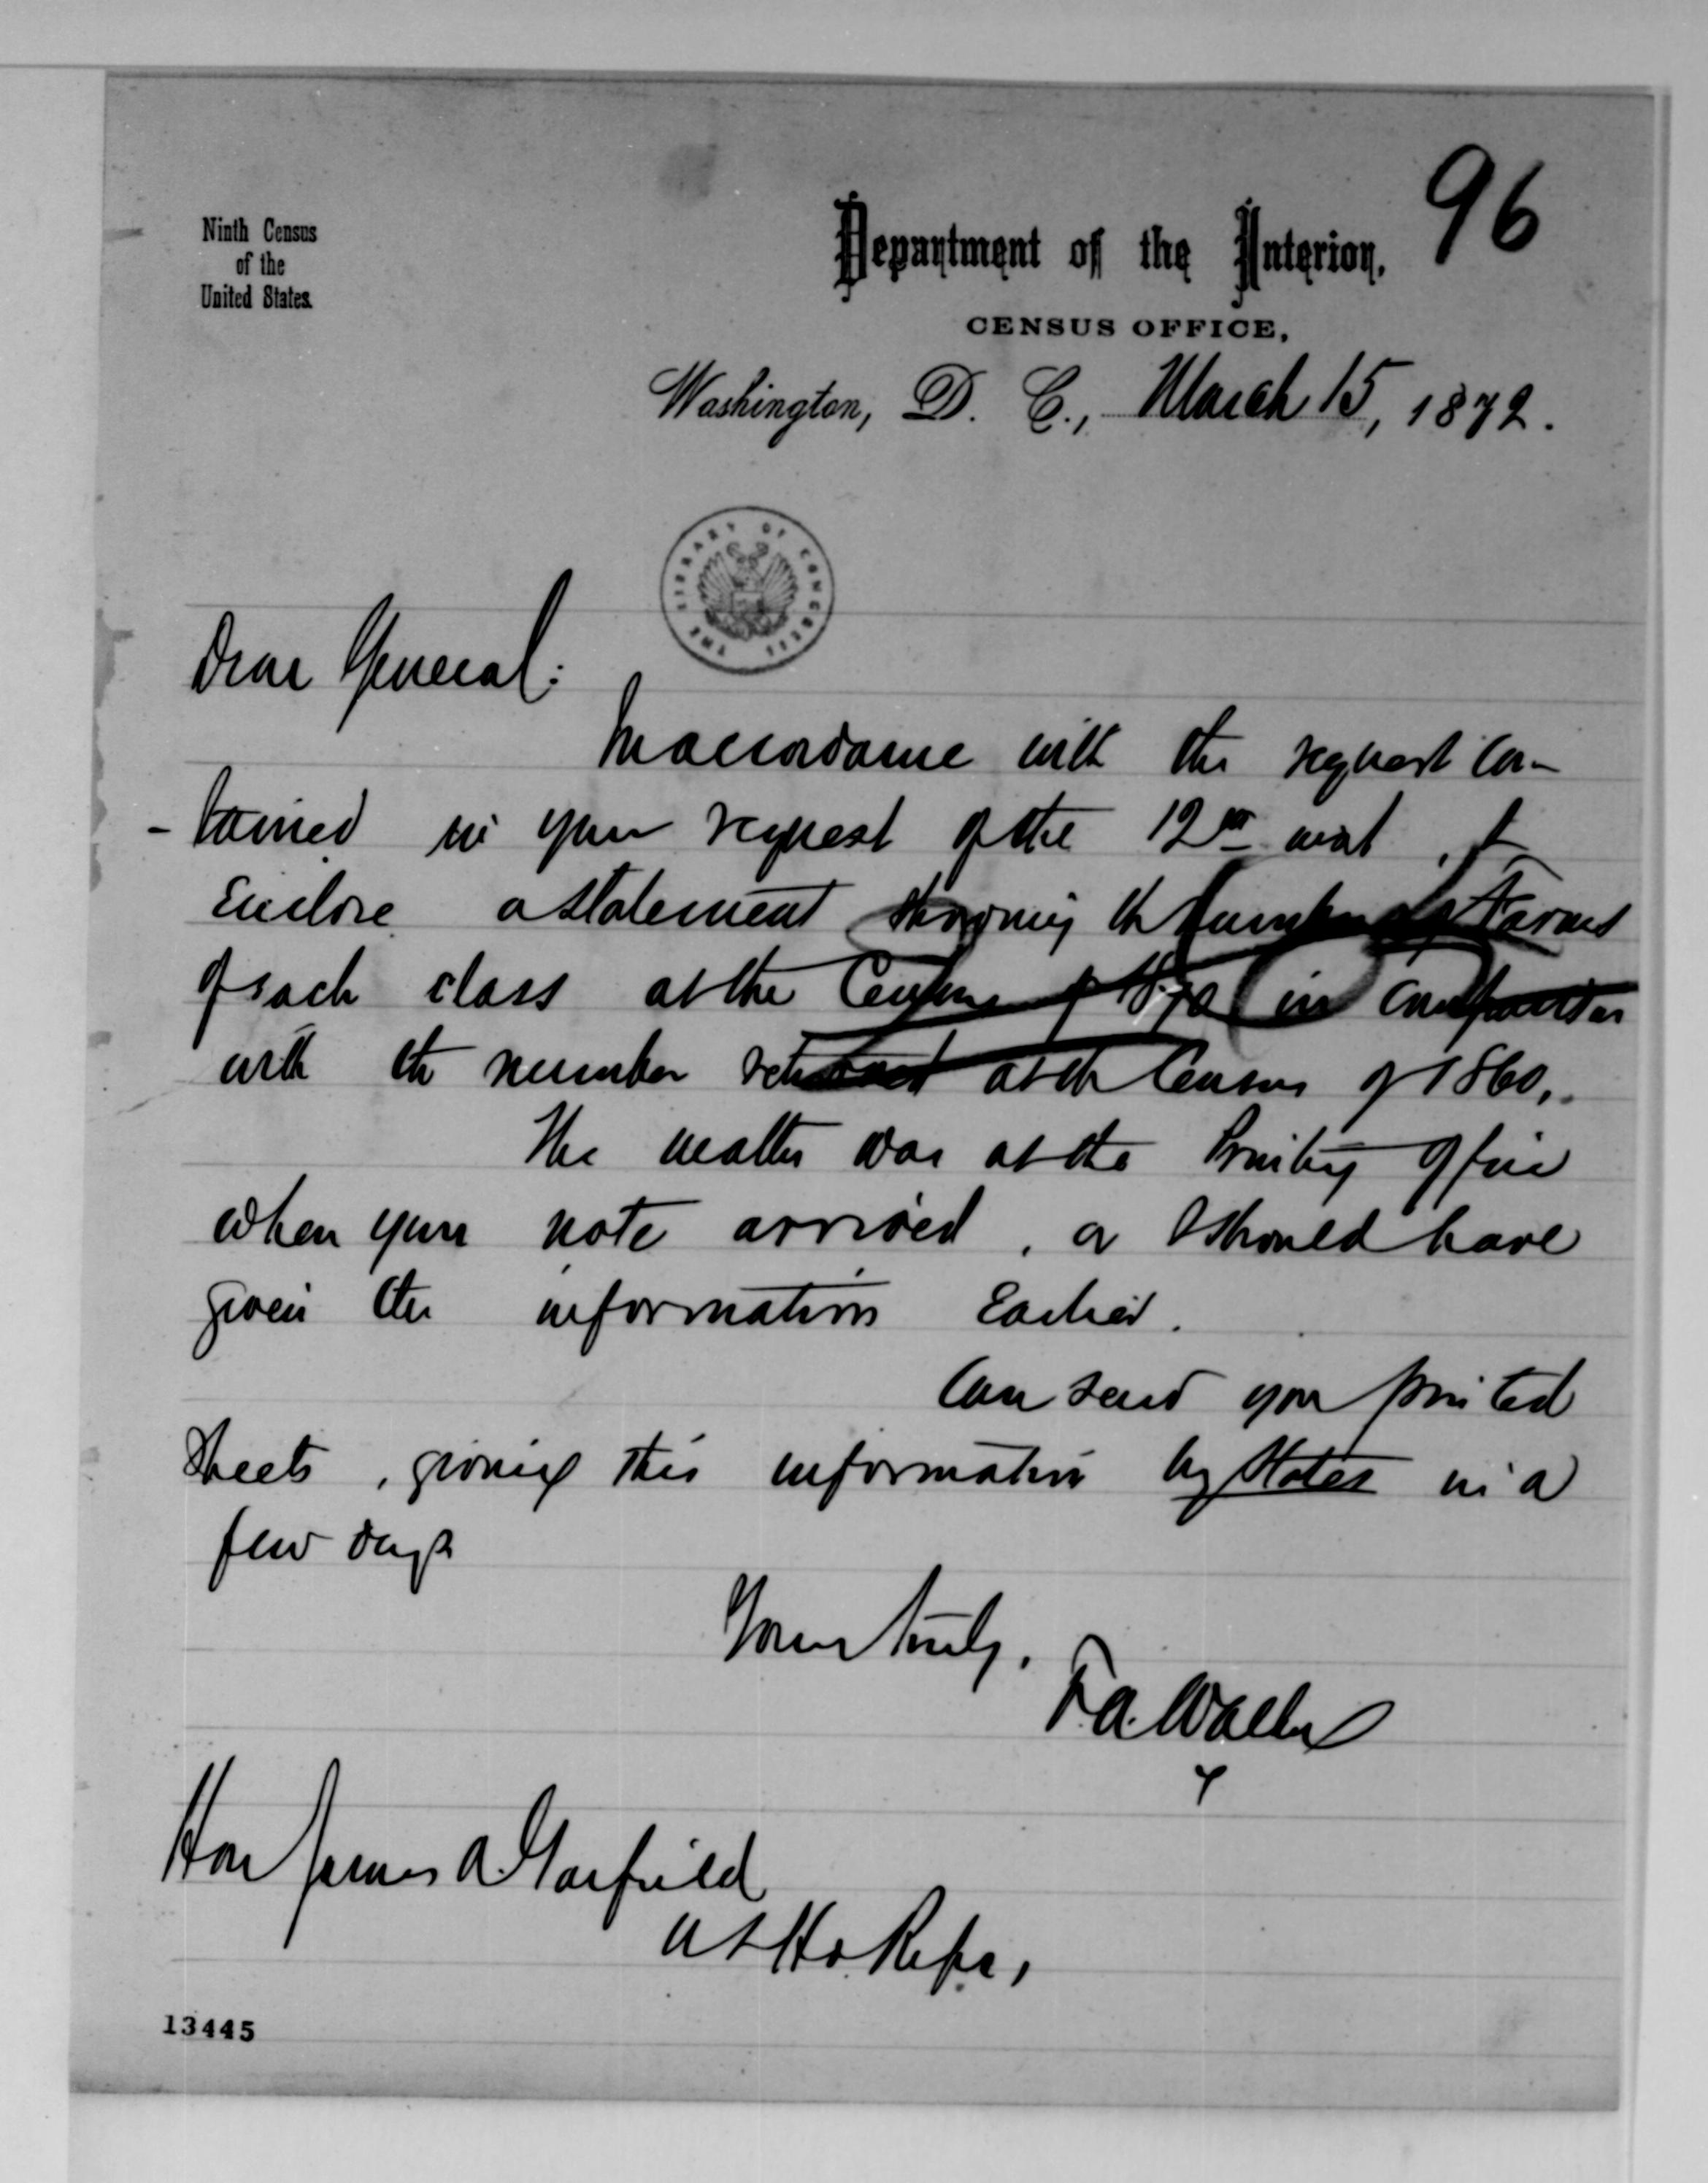 96
Ninth Census
of the
United States.
Department of the Interior,
CENSUS OFFICE,
Washington, D. C., March 15, 1872.
THE LIBRARY OF CONGRESS
Dear General:
In accordance with the request con-
-tained in your request of the 12th inst, I
Enclose a statement showing the number of Farms
of each class at the Census of 1870 in comparison
with the number returned at the Census of 1860,.
The matter was at the Printing Office
when your note arrived, or I should have
given the information Earlier.
Can send you printed
Sheets, giving this information by States in a
few days
Yours truly,
F.A. Walker
Hon James A. Garfield
U S Ho. Reps,
13445